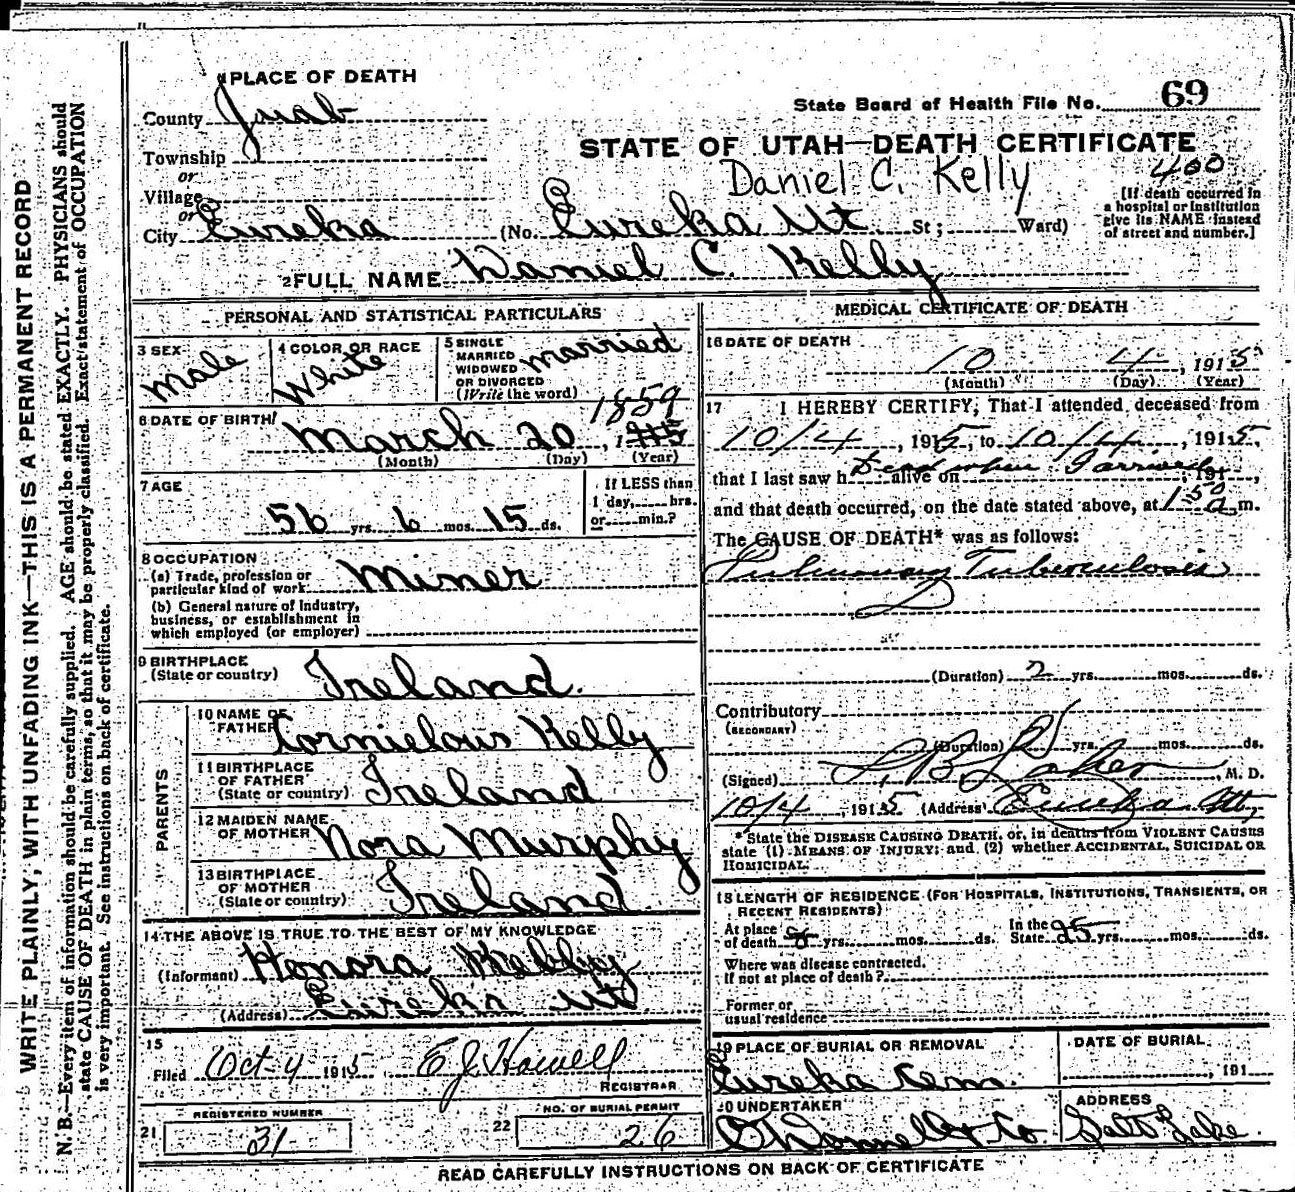 1 PLACE OF DEATH
County Juab
State Board of Health File No. 69
Township
or
Village
or
City Eureka
STATE OF UTAH—DEATH CERTIFICATE
Daniel C. Kelly 400
(No. Eureka Ut. St; Ward)
[If death occurred in
a hospital or institution
give its NAME instead
of street and number.]
2 FULL NAME Daniel C. Kelly
PERSONAL AND STATISTICAL PARTICULARS
3 SEX Male
4 COLOR OR RACE White
5 SINGLE
MARRIED
WIDOWED
OR DIVORCED
(Write the word) Married
6 DATE OF BIRTH March 20, 1859
(Month) (Day) (Year)
7 AGE
56 yrs. 6 mos. 15 ds.
If LESS than
1 day, hrs.
or min.?
8 OCCUPATION
(a) Trade, profession or
particular kind of work Miner
(b) General nature of Industry,
business, or establishment in
which employed (or employer)
9 BIRTHPLACE
(State or country) Ireland.
PARENTS
10 NAME OF
FATHER Cornielous Kelly
11 BIRTHPLACE
OF FATHER
(State or country) Ireland
12 MAIDEN NAME
OF MOTHER Nora Murphy
13 BIRTHPLACE
OF MOTHER
(State or country) Ireland.
14 THE ABOVE IS TRUE TO THE BEST OF MY KNOWLEDGE
(Informant) Honora Kelly
(Address) Eureka Ut.
15
Filed Oct-4 1915 E. J. Howell
REGISTRAR
21 REGISTERED NUMBER
31
22 NO. OF BURIAL PERMIT
26
MEDICAL CERTIFICATE OF DEATH
16 DATE OF DEATH
10 4, 1915
(Month) (Day) (Year)
17 I HEREBY CERTIFY, That I attended deceased from
10/4, 1915, to 10/4, 1915,
that I last saw h alive on Dead when I arrived, 191,
and that death occurred, on the date stated above, at 1:50 a m.
The CAUSE OF DEATH* was as follows:
Pulmonary Tuberculosis
(Duration) 2 yrs. mos. ds.
Contributory
(SECONDARY)
(Duration) yrs. mos. ds.
(Signed) M. D.
10/4, 1915 (Address) Eureka Ut,
*State the DISEASE CAUSING DEATH, or, in deaths from VIOLENT CAUSES
state (1) MEANS OF INJURY; and (2) whether ACCIDENTAL, SUICIDAL OR
HOMICIDAL.
18 LENGTH OF RESIDENCE (FOR HOSPITALS, INSTITUTIONS, TRANSIENTS, OR
RECENT RESIDENTS)
At place
of death yrs. mos. ds.
In the
State 25 yrs. mos. ds.
Where was disease contracted,
If not at place of death?
Former or
usual residence
19 PLACE OF BURIAL OR REMOVAL
Eureka Cem.
DATE OF BURIAL
, 191
20 UNDERTAKER
O'Donnell & Co
ADDRESS
Salt Lake.
READ CAREFULLY INSTRUCTIONS ON BACK OF CERTIFICATE
WRITE PLAINLY, WITH UNFADING INK—THIS IS A PERMANENT RECORD
N. B.—Every item of information should be carefully supplied. AGE should be stated EXACTLY. PHYSICIANS should
state CAUSE OF DEATH in plain terms, so that it may be properly classified. Exact statement of OCCUPATION
is very important. See instructions on back of certificate.